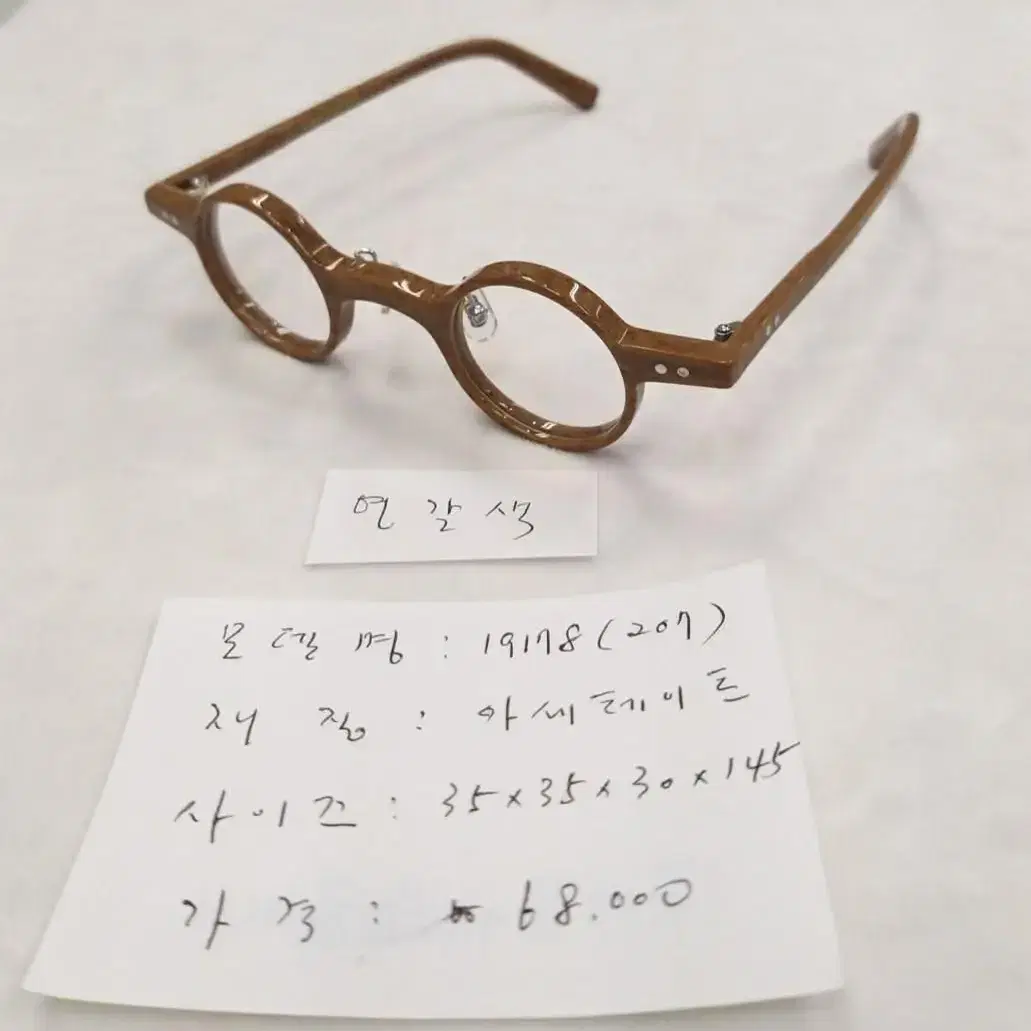 연갈색
모델명 : 19178(207)
재 질 : 아세테이트
사이즈 : 35×35×30×145
가 격 : 68.000